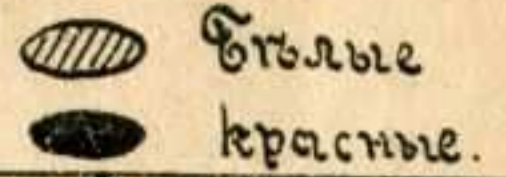 Бѣлые
красные.